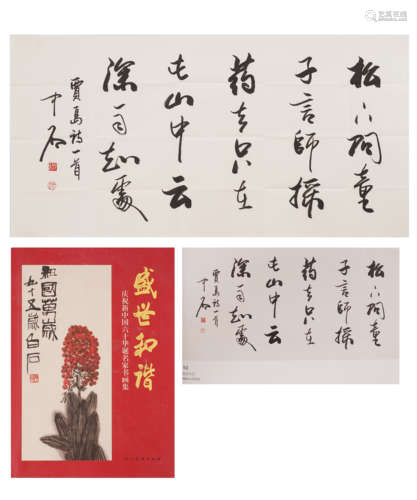 松下问童
子言師採
药去只在
此山中云
深不知處
賈島诗一首
中石
祖國萬歲
九十五歲白石
盛世和谐
庆祝新中国六十华诞名家书画集
松下问童
子言師採
药去只在
此山中云
深不知處
賈島诗一首
中石